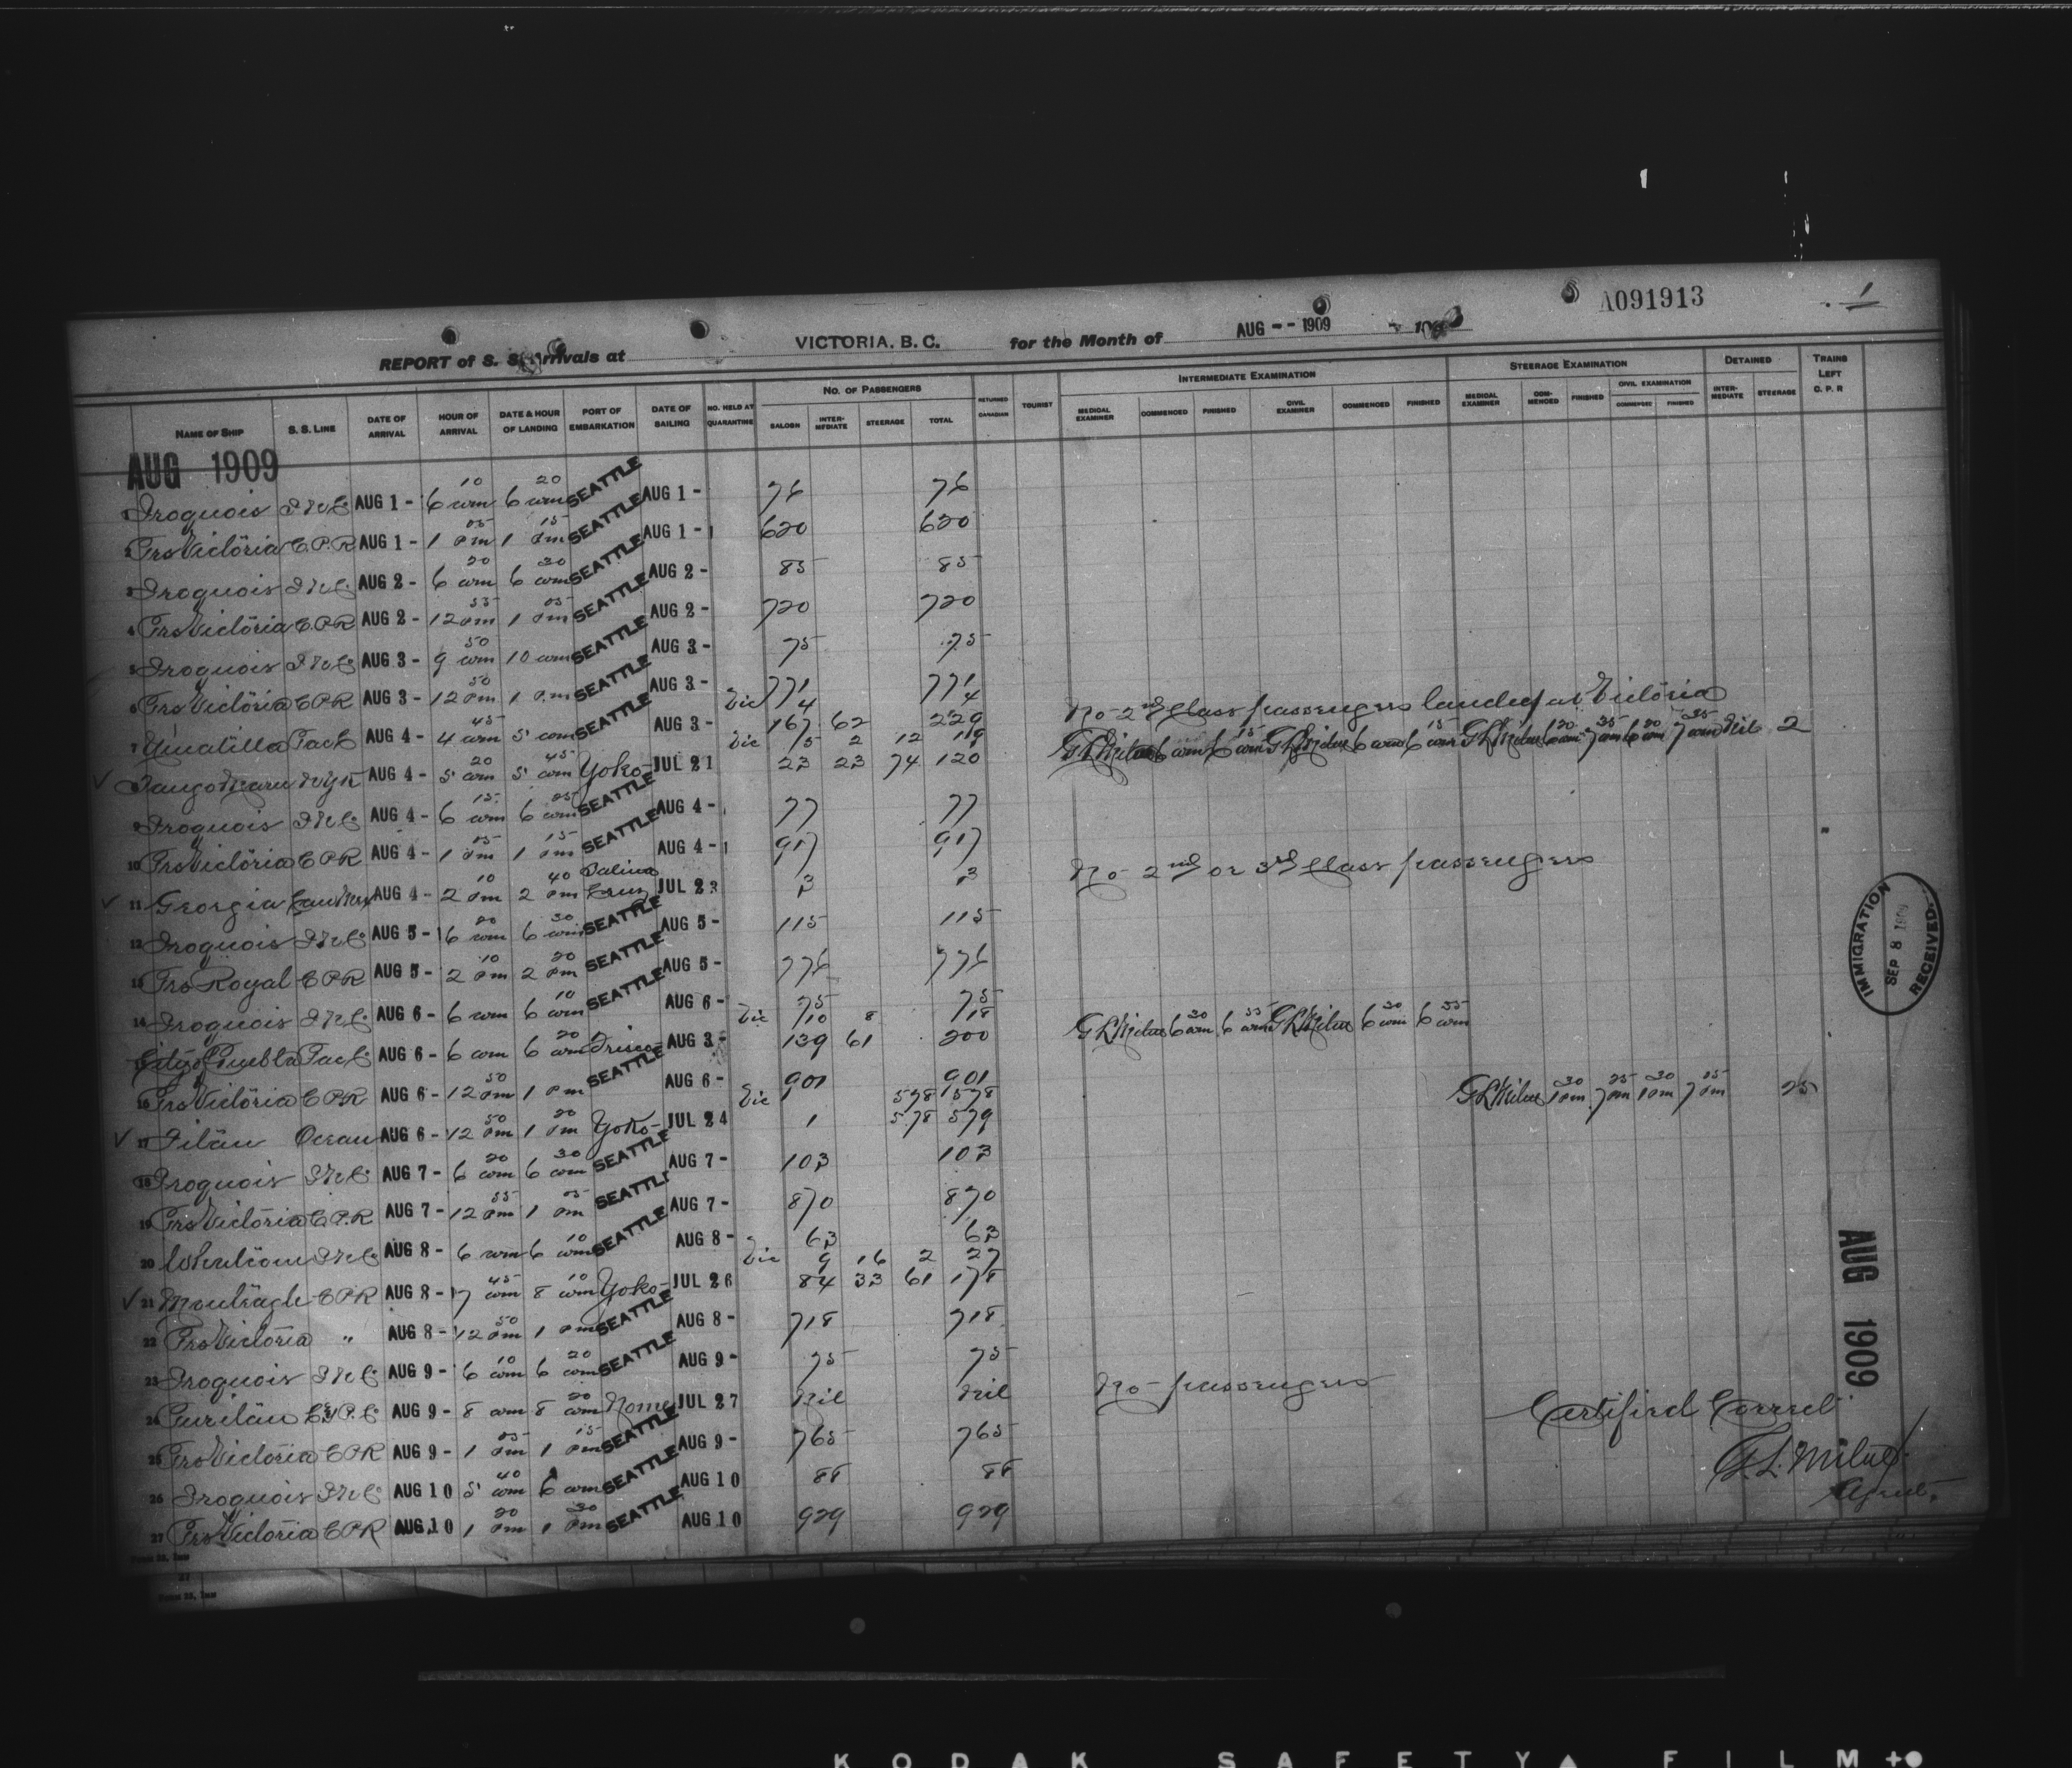 A091913
1
REPORT of S. S. Arrivals at VICTORIA, B. C. for the Month of AUG -- 1909
NAME OF SHIP S. S. LINE DATE OF ARRIVAL HOUR OF ARRIVAL DATE & HOUR OF LANDING PORT OF EMBARKATION DATE OF SAILING NO. HELD AT QUARANTINE NO. OF PASSENGERS SALOON INTER-MEDIATE STEERAGE TOTAL RETURNED CANADIAN TOURIST INTERMEDIATE EXAMINATION MEDICAL EXAMINER COMMENCED FINISHED CIVIL EXAMINER COMMENCED FINISHED STEERAGE EXAMINATION MEDICAL EXAMINER COM-MENCED FINISHED CIVIL EXAMINATION COMMENCED FINISHED DETAINED INTER-MEDIATE STEERAGE TRAINS LEFT C. P. R
AUG 1909
1 Iroquois AUG 1 - 6 10 am 6 20 am SEATTLE AUG 1 - 76 76
2 Prs Victoria C.P.R AUG 1 - 1 05 pm 1 15 pm SEATTLE AUG 1 - 620 620
3 Iroquois AUG 2 - 6 20 am 6 30 am SEATTLE AUG 2 - 85 85
4 Prs Victoria C.P.R AUG 2 - 12 55 pm 1 05 pm SEATTLE AUG 2 - 720 720
5 Iroquois AUG 3 - 9 50 am 10 am SEATTLE AUG 3 - 75 75
6 Prs Victoria CPR AUG 3 - 12 50 pm 1 pm SEATTLE AUG 3 - 771 771
Vic 4 4 No 2nd Class passengers landed at Victoria
7 Umatilla AUG 4 - 4 45 am 5 am SEATTLE AUG 3 - 167 62 229
Vic 15 2 12 G L Milne 6 am 6 15 am G L Milne 6 am 6 15 am G L Milne 6 20 am 7 35 am 6 20 am 7 35 am Nil 2
8 Tango Maru NYK AUG 4 - 5 20 am 5 45 am Yoko- JUL 21 23 23 74 120
9 Iroquois AUG 4 - 6 15 am 6 25 am SEATTLE AUG 4 - 77 77
10 Prs Victoria CPR AUG 4 - 1 05 pm 1 15 pm SEATTLE AUG 4 - 917 917
11 Georgia AUG 4 - 2 10 pm 2 40 pm Salina Cruz JUL 23 3 3 No 2nd or 3rd Class passengers
12 Iroquois AUG 5 - 6 20 am 6 30 am SEATTLE AUG 5 - 115 115
13 Prs Royal CPR AUG 5 - 2 10 pm 2 20 pm SEATTLE AUG 5 - 776 776
14 Iroquois AUG 6 - 6 am 6 10 am SEATTLE AUG 6 - 75 75
Vic 10 8 18 G L Milne 6 30 am 6 55 am G L Milne 6 30 am 6 55 am
15 City of Puebla AUG 6 - 6 am 6 20 am Frisco AUG 3 - 139 61 200
16 Prs Victoria CPR AUG 6 - 12 50 pm 1 pm SEATTLE AUG 6 - 901 901
Vic 578 578 G L Milne 1 30 pm 7 25 pm 1 30 pm 7 25 pm 25
17 Ocean AUG 6 - 12 50 pm 1 20 pm Yoko- JUL 24 1 578 579
18 Iroquois AUG 7 - 6 20 am 6 30 am SEATTLE AUG 7 - 103 103
19 Prs Victoria C.P.R AUG 7 - 12 55 pm 1 05 pm SEATTLE AUG 7 - 870 870
20 Whatcom AUG 8 - 6 am 6 10 am SEATTLE AUG 8 - 63 63
Vic 9 16 2 27
21 Monteagle CPR AUG 8 - 7 45 am 8 10 am Yoko- JUL 26 84 33 61 178
22 Prs Victoria " AUG 8 - 12 50 pm 1 pm SEATTLE AUG 8 - 718 718
23 Iroquois AUG 9 - 6 10 am 6 20 am SEATTLE AUG 9 - 75 75
24 AUG 9 - 8 am 8 20 am Nome JUL 27 Nil Nil No passengers
25 Prs Victoria CPR AUG 9 - 1 05 pm 1 15 pm SEATTLE AUG 9 - 765 765
26 Iroquois AUG 10 5 40 am 6 am SEATTLE AUG 10 88 88
27 Prs Victoria CPR AUG 10 1 20 pm 1 30 pm SEATTLE AUG 10 929 929
Certified Correct
G. L. Milne
Agent.
IMMIGRATION
SEP 8 1909
RECEIVED
AUG 1909
KODAK SAFETY FILM